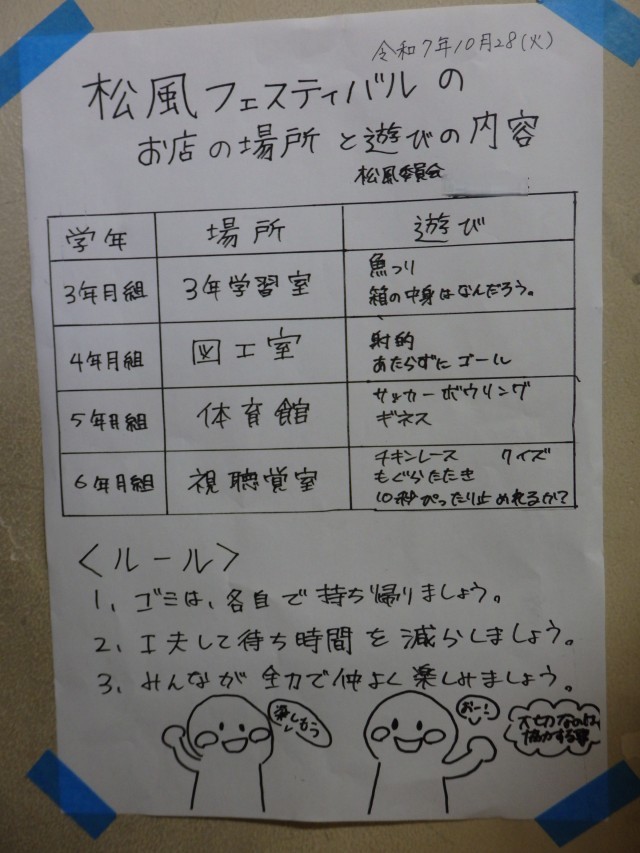 令和7年10月28(火)
松風フェスティバルの
お店の場所と遊びの内容
松風委員会
学年 場所 遊び
3年月組 3年学習室 魚つり
箱の中身はなんだろう。
4年月組 図工室 射的
あたらずにゴール
5年月組 体育館 サッカーボウリング
ギネス
6年月組 視聴覚室 チキンレース クイズ
もぐらたたき
10秒ぴったり止めれるか?
<ルール>
1、ゴミは、各自で持ち帰りましょう。
2、工夫して待ち時間を減らしましょう。
3、みんなが全力で仲よく楽しみましょう。
楽しもう
おー!
大切なのは、
協力する事